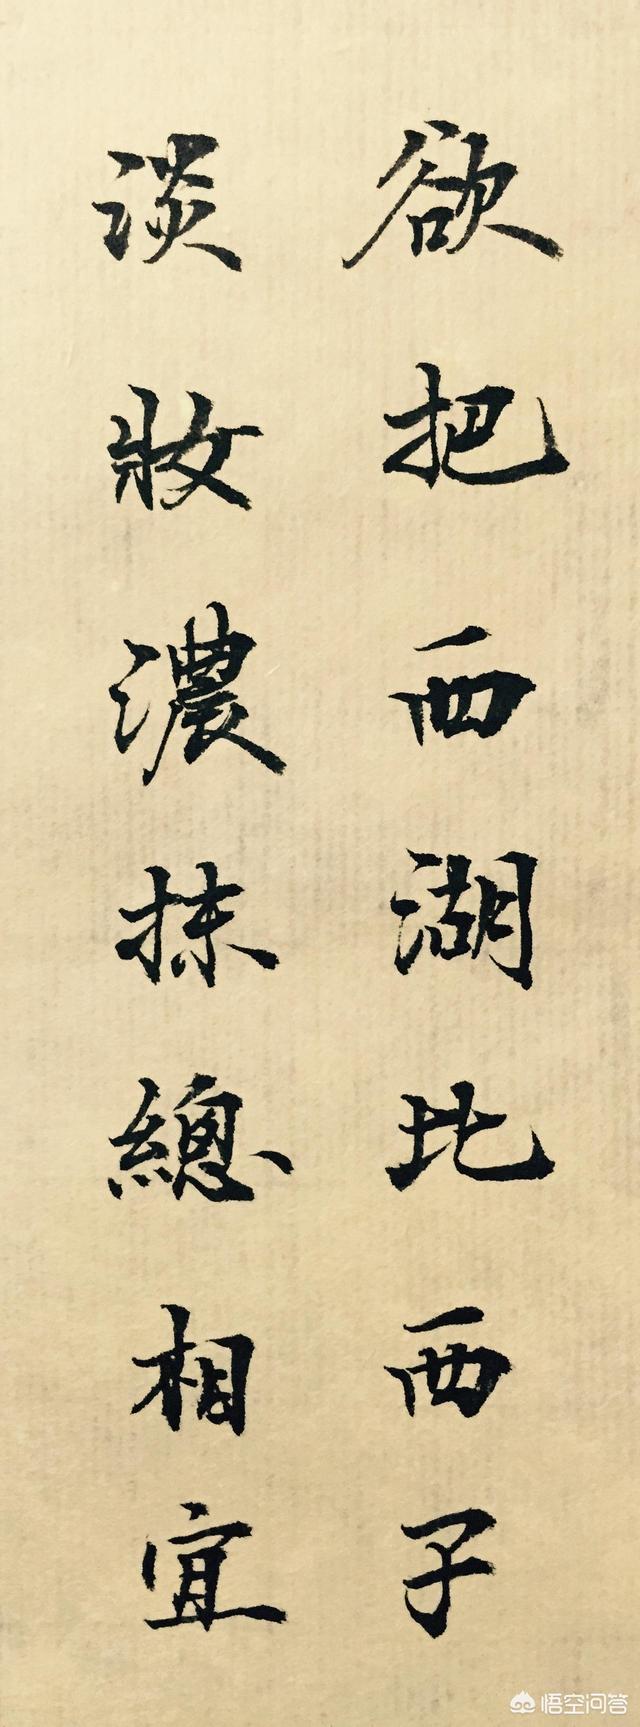 欲把西湖比西子
淡妝濃抹總相宜
悟空问答